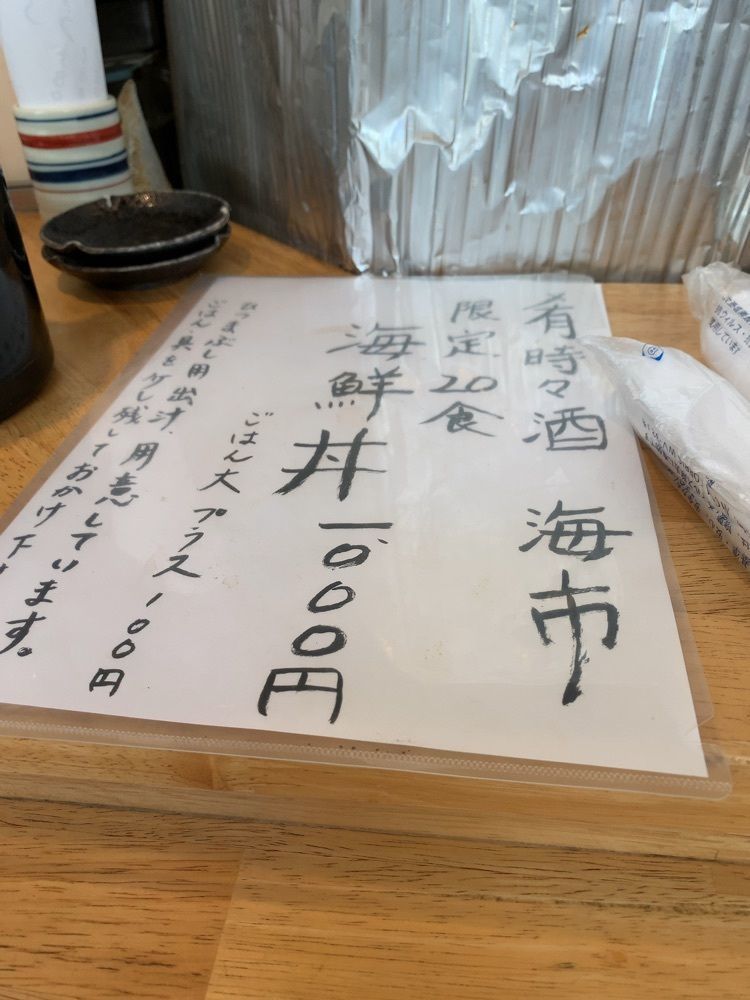 肴時々酒 海市
限定20食
海鮮丼 一、〇〇〇円
ごはん大 プラス 100円
ひつまぶし用出汁、用意しています。
ごはん具を少し残しておかけ下